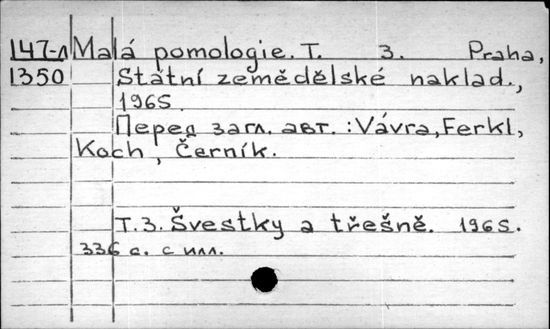 147-л Malá pomologie. T. 3. Praha,
1350 Státní zemědělské naklad.,
1965.
Перед загл. авт.: Vávra, Ferkl,
Koch, Černík.
T. 3. Švestky a třešně. 1965.
336 с. с илл.